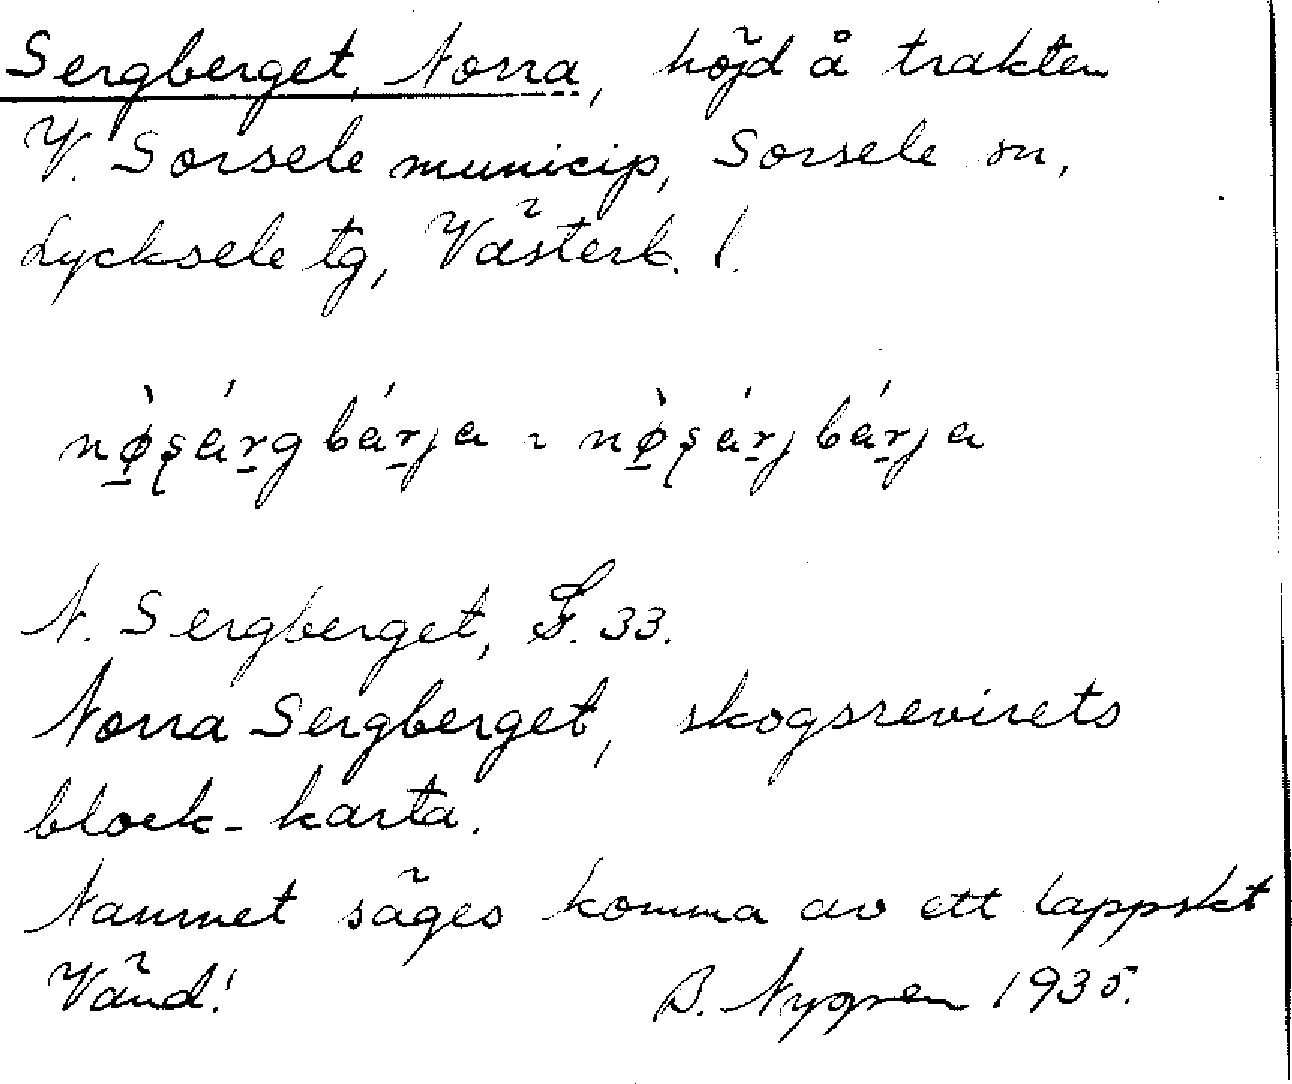 Sergberget, Norra, höjd å trakten
V. Sorsele municip, Sorsele sn,
Lycksele tg, Västerb. l.
nø̀sárgbárja ~ nø̀sárjbárja
N. Sergberget, F. 33.
Norra Sergberget, skogsrevirets
block-karta.
Namnet säges komma av ett lappskt
Vänd! B. Nygren 1935.